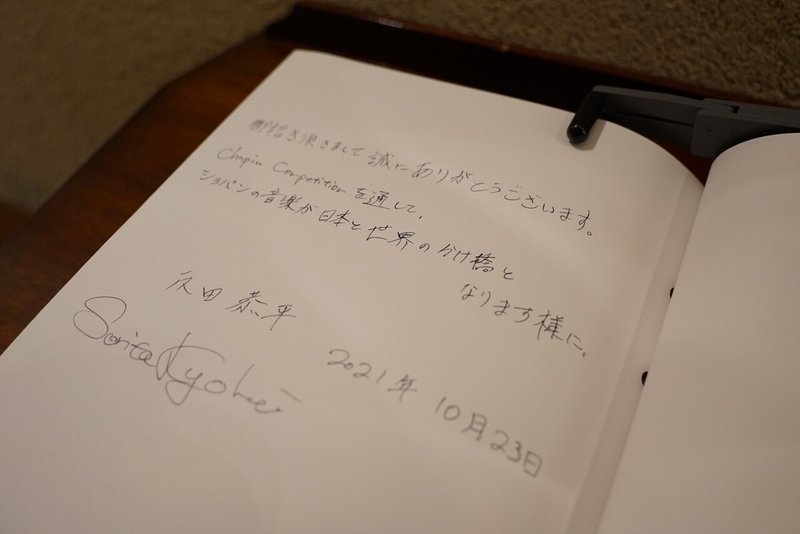 御招き頂きまして誠にありがとうございます。
Chopin Competitionを通して、
ショパンの音楽が日本と世界のかけ橋と
なります様に。
反田恭平
Sorita Kyohei
2021年 10月23日